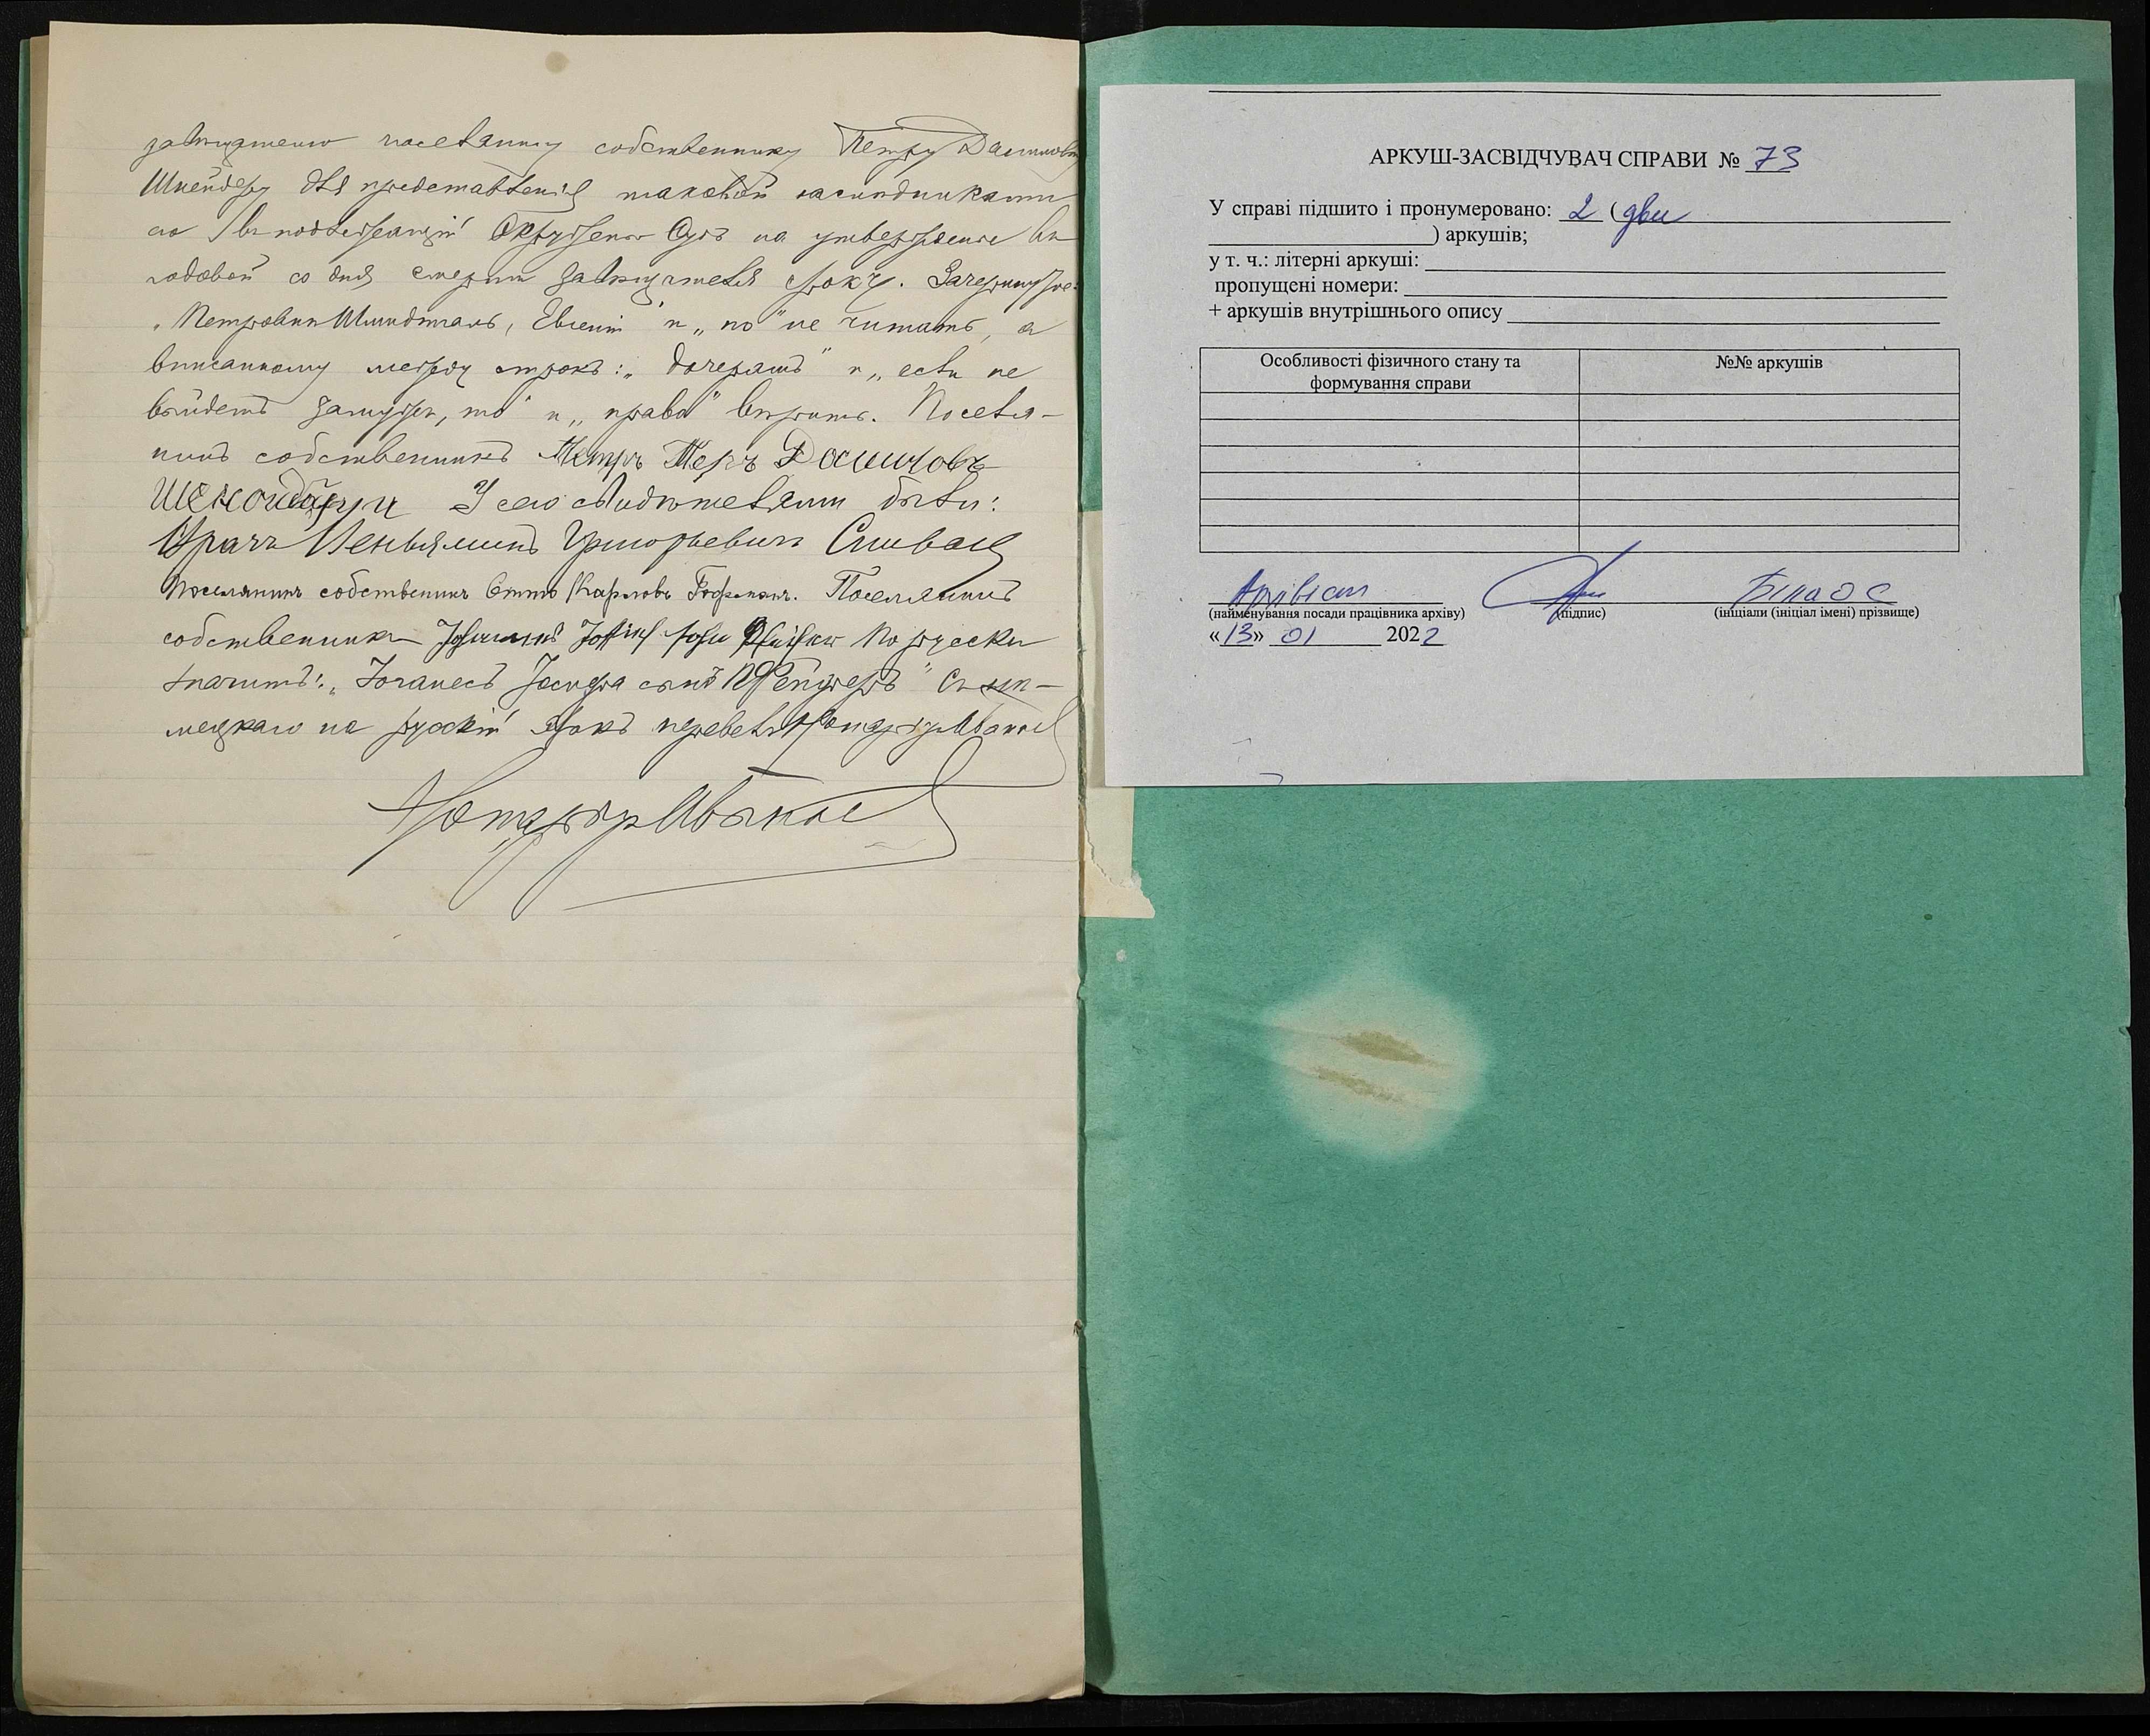 завѣщателю поселянину собственнику Петру Данилову
Шнейдеру для представленія таковой наслѣдниками
его въ подлежащій Окружной Судъ на утвержденіе въ
годовой со дня смерти завѣщателя срокъ. Зачеркнутое:
„Петровни Шмидтгаль, Евгеніи" и „по" не читать, а
вписанному между строкъ: „дочерямъ" и „если не
выйдетъ замужъ, то" и „права" вѣрить. Поселя-
нинъ собственникъ Петръ Даниловъ
У сего свидѣтелями были:
Врачъ Веньяминъ Григорьевичъ Спивакъ
Поселянинъ собственникъ Оттъ Карловъ Гофманъ. Поселянинъ
собственникъ По русски
значитъ: „Іоганесъ Іосифа сынъ Пфейферъ" Съ нѣ-
мецкаго на русскій языкъ перевелъ Нотаріусъ
Нотаріусъ
АРКУШ-ЗАСВІДЧУВАЧ СПРАВИ № 73
У справі підшито і пронумеровано: 2 (два
) аркушів;
у т. ч.: літерні аркуші:
пропущені номери:
+ аркушів внутрішнього опису
Особливості фізичного стану та формування справи
№№ аркушів
Архівіст
(найменування посади працівника архіву) (підпис) (ініціали (ініціал імені) прізвище)
«13» 01 2022